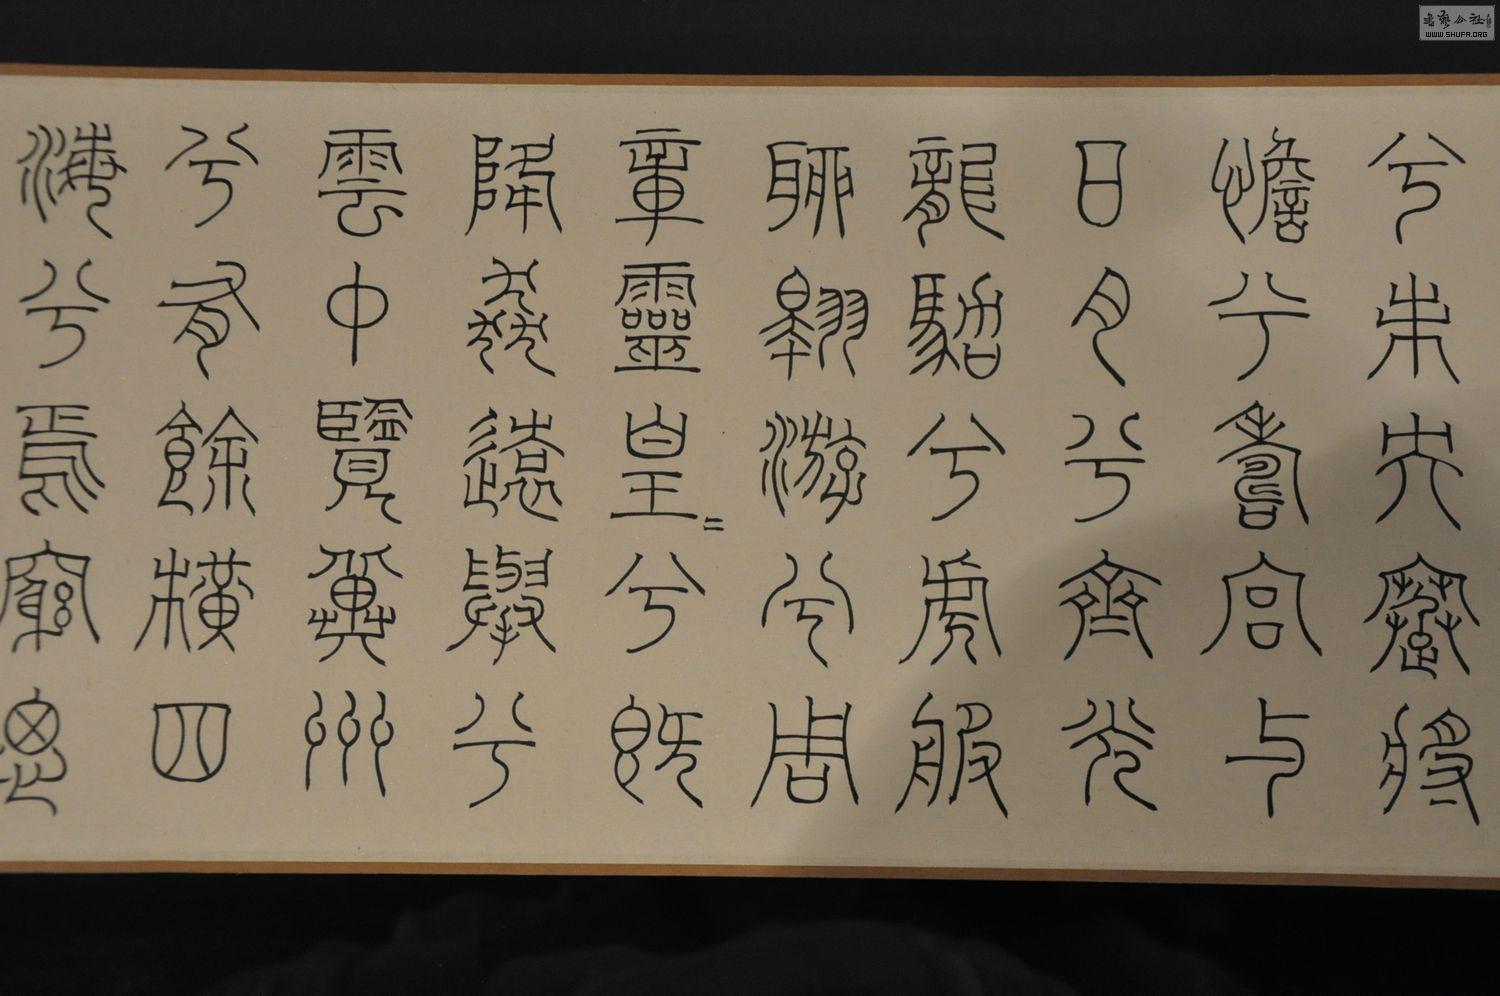 兮未央蹇將
憺兮壽宮与
日月兮齊光
龍駕兮帝服
聊翱游兮周
章靈皇〻兮既
降猋遠舉兮
雲中覽冀州
兮有餘橫四
海兮焉窮思
書藝公社
WWW.SHUFA.ORG